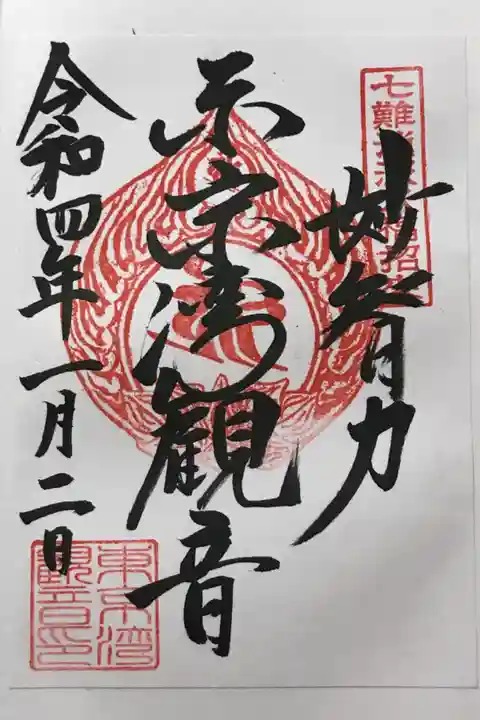 七難
福招
妙智力
東京湾観音
令和四年一月二日
東京湾
観音印